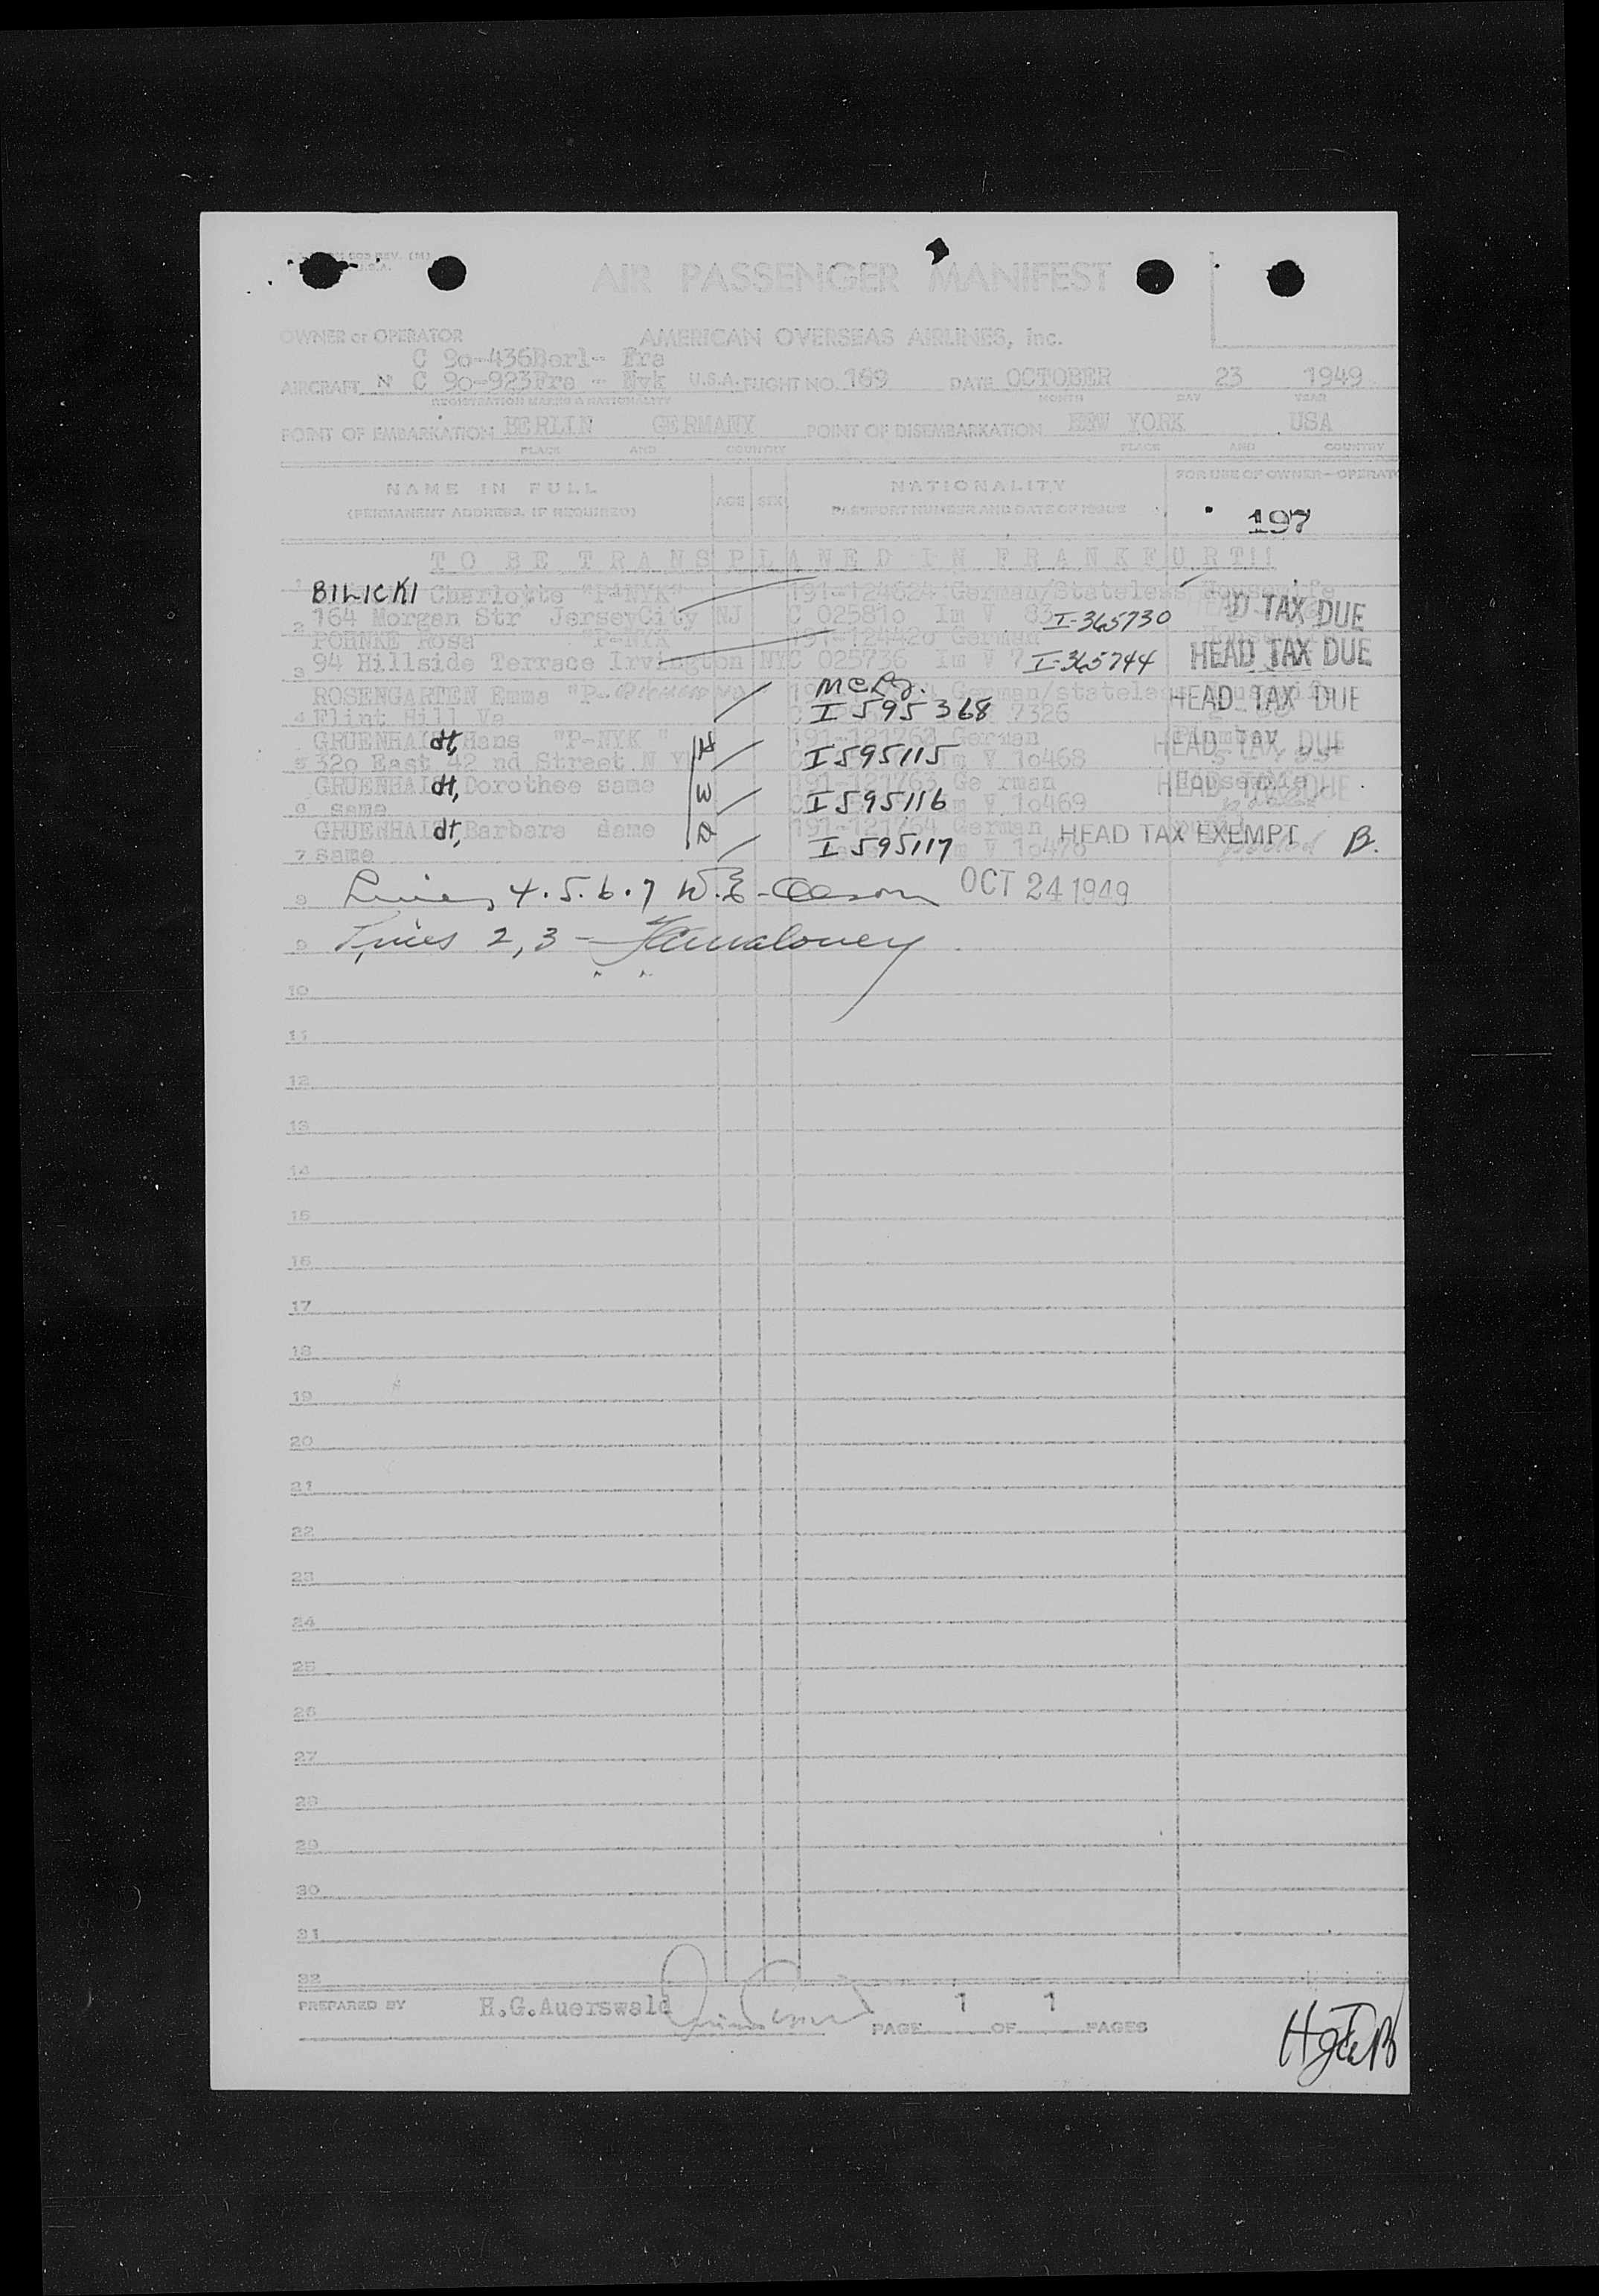 AIR PASSENGER MANIFEST
OWNER or OPERATOR AMERICAN OVERSEAS AIRLINES, Inc.
C 9o-436Berl- Fra
AIRCRAFT N C 9o-923Fra - Nyk U.S.A. FLIGHT NO. 169 DATE OCTOBER 23 1949
REGISTRATION MARKS & NATIONALITY MONTH DAY YEAR
POINT OF EMBARKATION BERLIN GERMANY POINT OF DISEMBARKATION NEW YORK USA
PLACE AND COUNTRY PLACE AND COUNTRY
NAME IN FULL AGE SEX NATIONALITY FOR USE OF OWNER-OPERAT
(PERMANENT ADDRESS, IF REQUIRED) PASSPORT NUMBER AND DATE OF ISSUE
197
TO BE TRANSPLANED IN FRANKFURT!!
1 BILICKI Charlotte "P-NYK" 191-124624 German/Stateless Housewife
2 164 Morgan Str JerseyCity NJ C 02581o Im V 83 I-365730 D TAX DUE
POHNKE Rosa "P-NYK 191-12442o German
3 94 Hillside Terrace Irvington NY C 025736 Im V 7 I-365744 HEAD TAX DUE
ROSENGARTEN Emma "P- German/stateless HEAD TAX DUE
4 Flint Hill Va I 595368 7326
GRUENHAI dt, Hans "P-NYK" 191-121762 German Plumber HEAD TAX DUE
5 32o East 42 nd Street N Y I 595115 Im V 1o468
GRUENHAI dt, Dorothee same 191-121763 Ge rman Housewife HEAD TAX DUE
6 same I 595116 m V 1o469
GRUENHAI dt, Barbara same 191-121764 German HEAD TAX EXEMPT B.
7 same I 595117 m V 1o470
8 Lines 4.5.6.7 W.E. Oleson OCT 24 1949
9 Lines 2,3 -
10
11
12
13
14
15
16
17
18
19
20
21
22
23
24
25
26
27
28
29
30
31
32
PREPARED BY H.G.Auerswald PAGE 1 OF 1 PAGES